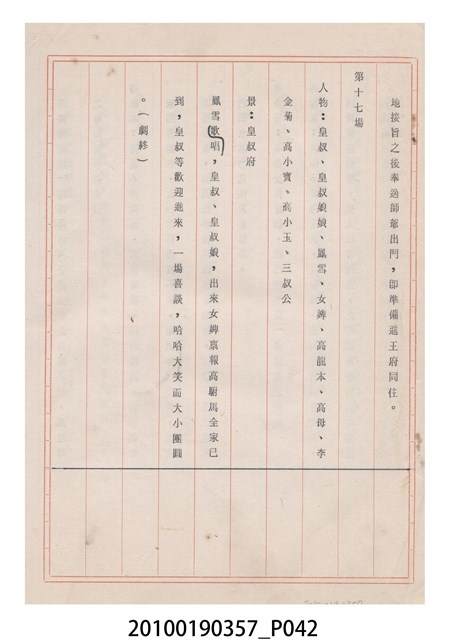 地接旨之後奉送師爺出門，即準備進王府同住。
第十七場
人物：皇叔、皇叔娘娘、鳳雪、女婢、高龍本、高母、李
金菊、高小寶、高小玉、三叔公
景：皇叔府
鳳雪歌唱，皇叔、皇叔娘，出來女婢稟報高駙馬全家已
到，皇叔等歡迎進來，一場喜談，哈哈大笑而大小團圓
。（劇終）
20100190357_P042